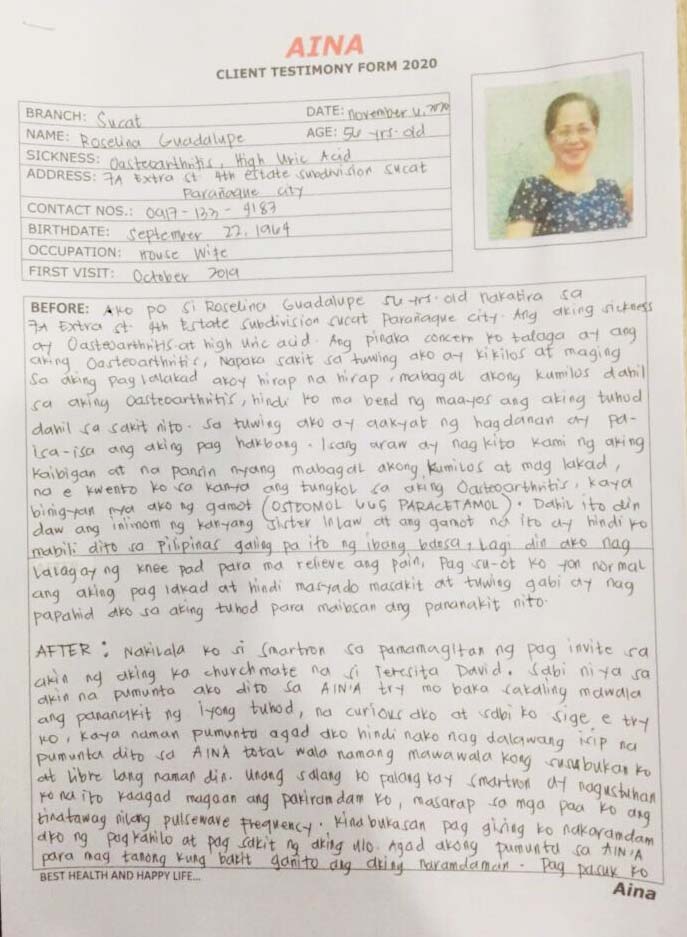 AINA
CLIENT TESTIMONY FORM 2020
BRANCH: Sucat DATE: november 4, 2020
NAME: Roselina Guadalupe AGE: 56 yrs. old
SICKNESS: Oasteoarthritis, High Uric Acid
ADDRESS: 7A Extra st. 4th estate subdivision sucat
Parañaque city
CONTACT NOS.: 0917-133-9183
BIRTHDATE: September 22, 1964
OCCUPATION: House Wife
FIRST VISIT: October 2019
BEFORE: Ako po si Roselina Guadalupe 56 yrs. old nakatira sa
7A Extra st. 4th Estate subdivision sucat Parañaque city. Ang aking sickness
ay Oasteoarthritis at high uric acid. Ang pinaka concern ko talaga ay ang
aking Oasteoarthritis, Napaka sakit sa tuwing ako ay kikilos at maging
sa aking pag lalakad akoy hirap na hirap, mabagal akong kumilos dahil
sa aking Oasteoarthritis, hindi ko ma bend ng maayos ang aking tuhod
dahil sa sakit nito. sa tuwing ako ay aakyat ng hagdanan ay pa-
isa-isa ang aking pag hakbang. Isang araw ay nag kita kami ng aking
kaibigan at na pansin nyang mabagal akong kumilos at mag lakad,
na e kwento ko sa kanya ang tungkol sa aking Oasteoarthritis, kaya
binigyan nya ako ng gamot (OSTEOMOL 665 PARACETAMOL). Dahil ito din
daw ang iniinom ng kanyang Sister In law at ang gamot na ito ay hindi ko
mabili dito sa Pilipinas galing pa ito ng ibang bansa, Lagi din ako nag
lalagay ng knee pad para ma relieve ang pain, Pag su-ot ko yon normal
ang aking pag lakad at hindi masyado masakit at tuwing gabi ay nag
papahid ako sa aking tuhod para maibsan ang pananakit nito.
AFTER: Nakilala ko si smartron sa pamamagitan ng pag invite sa
akin ng aking ka churchmate na si Teresita David. sabi niya sa
akin na pumunta ako dito sa AINA try mo baka sakaling mawala
ang pananakit ng iyong tuhod, na curious ako at sabi ko sige e try
ko, kaya naman pumunta agad ako hindi nako nag dalawang isip na
pumunta dito sa AINA total wala namang mawawala kong susubukan ko
at libre lang naman din. Unang salang ko palang kay smartron ay nagustuhan
ko na ito kaagad magaan ang pakiramdam ko, masarap sa mga paa ko ang
tinatawag nilang pulsewave frequency. Kinabukasan pag gising ko nakaramdam
ako ng pagkahilo at pag sakit ng aking ulo. Agad akong pumunta sa AINA
para mag tanong kung bakit ganito ang aking naramdaman. Pag pasuk ko
BEST HEALTH AND HAPPY LIFE...
Aina